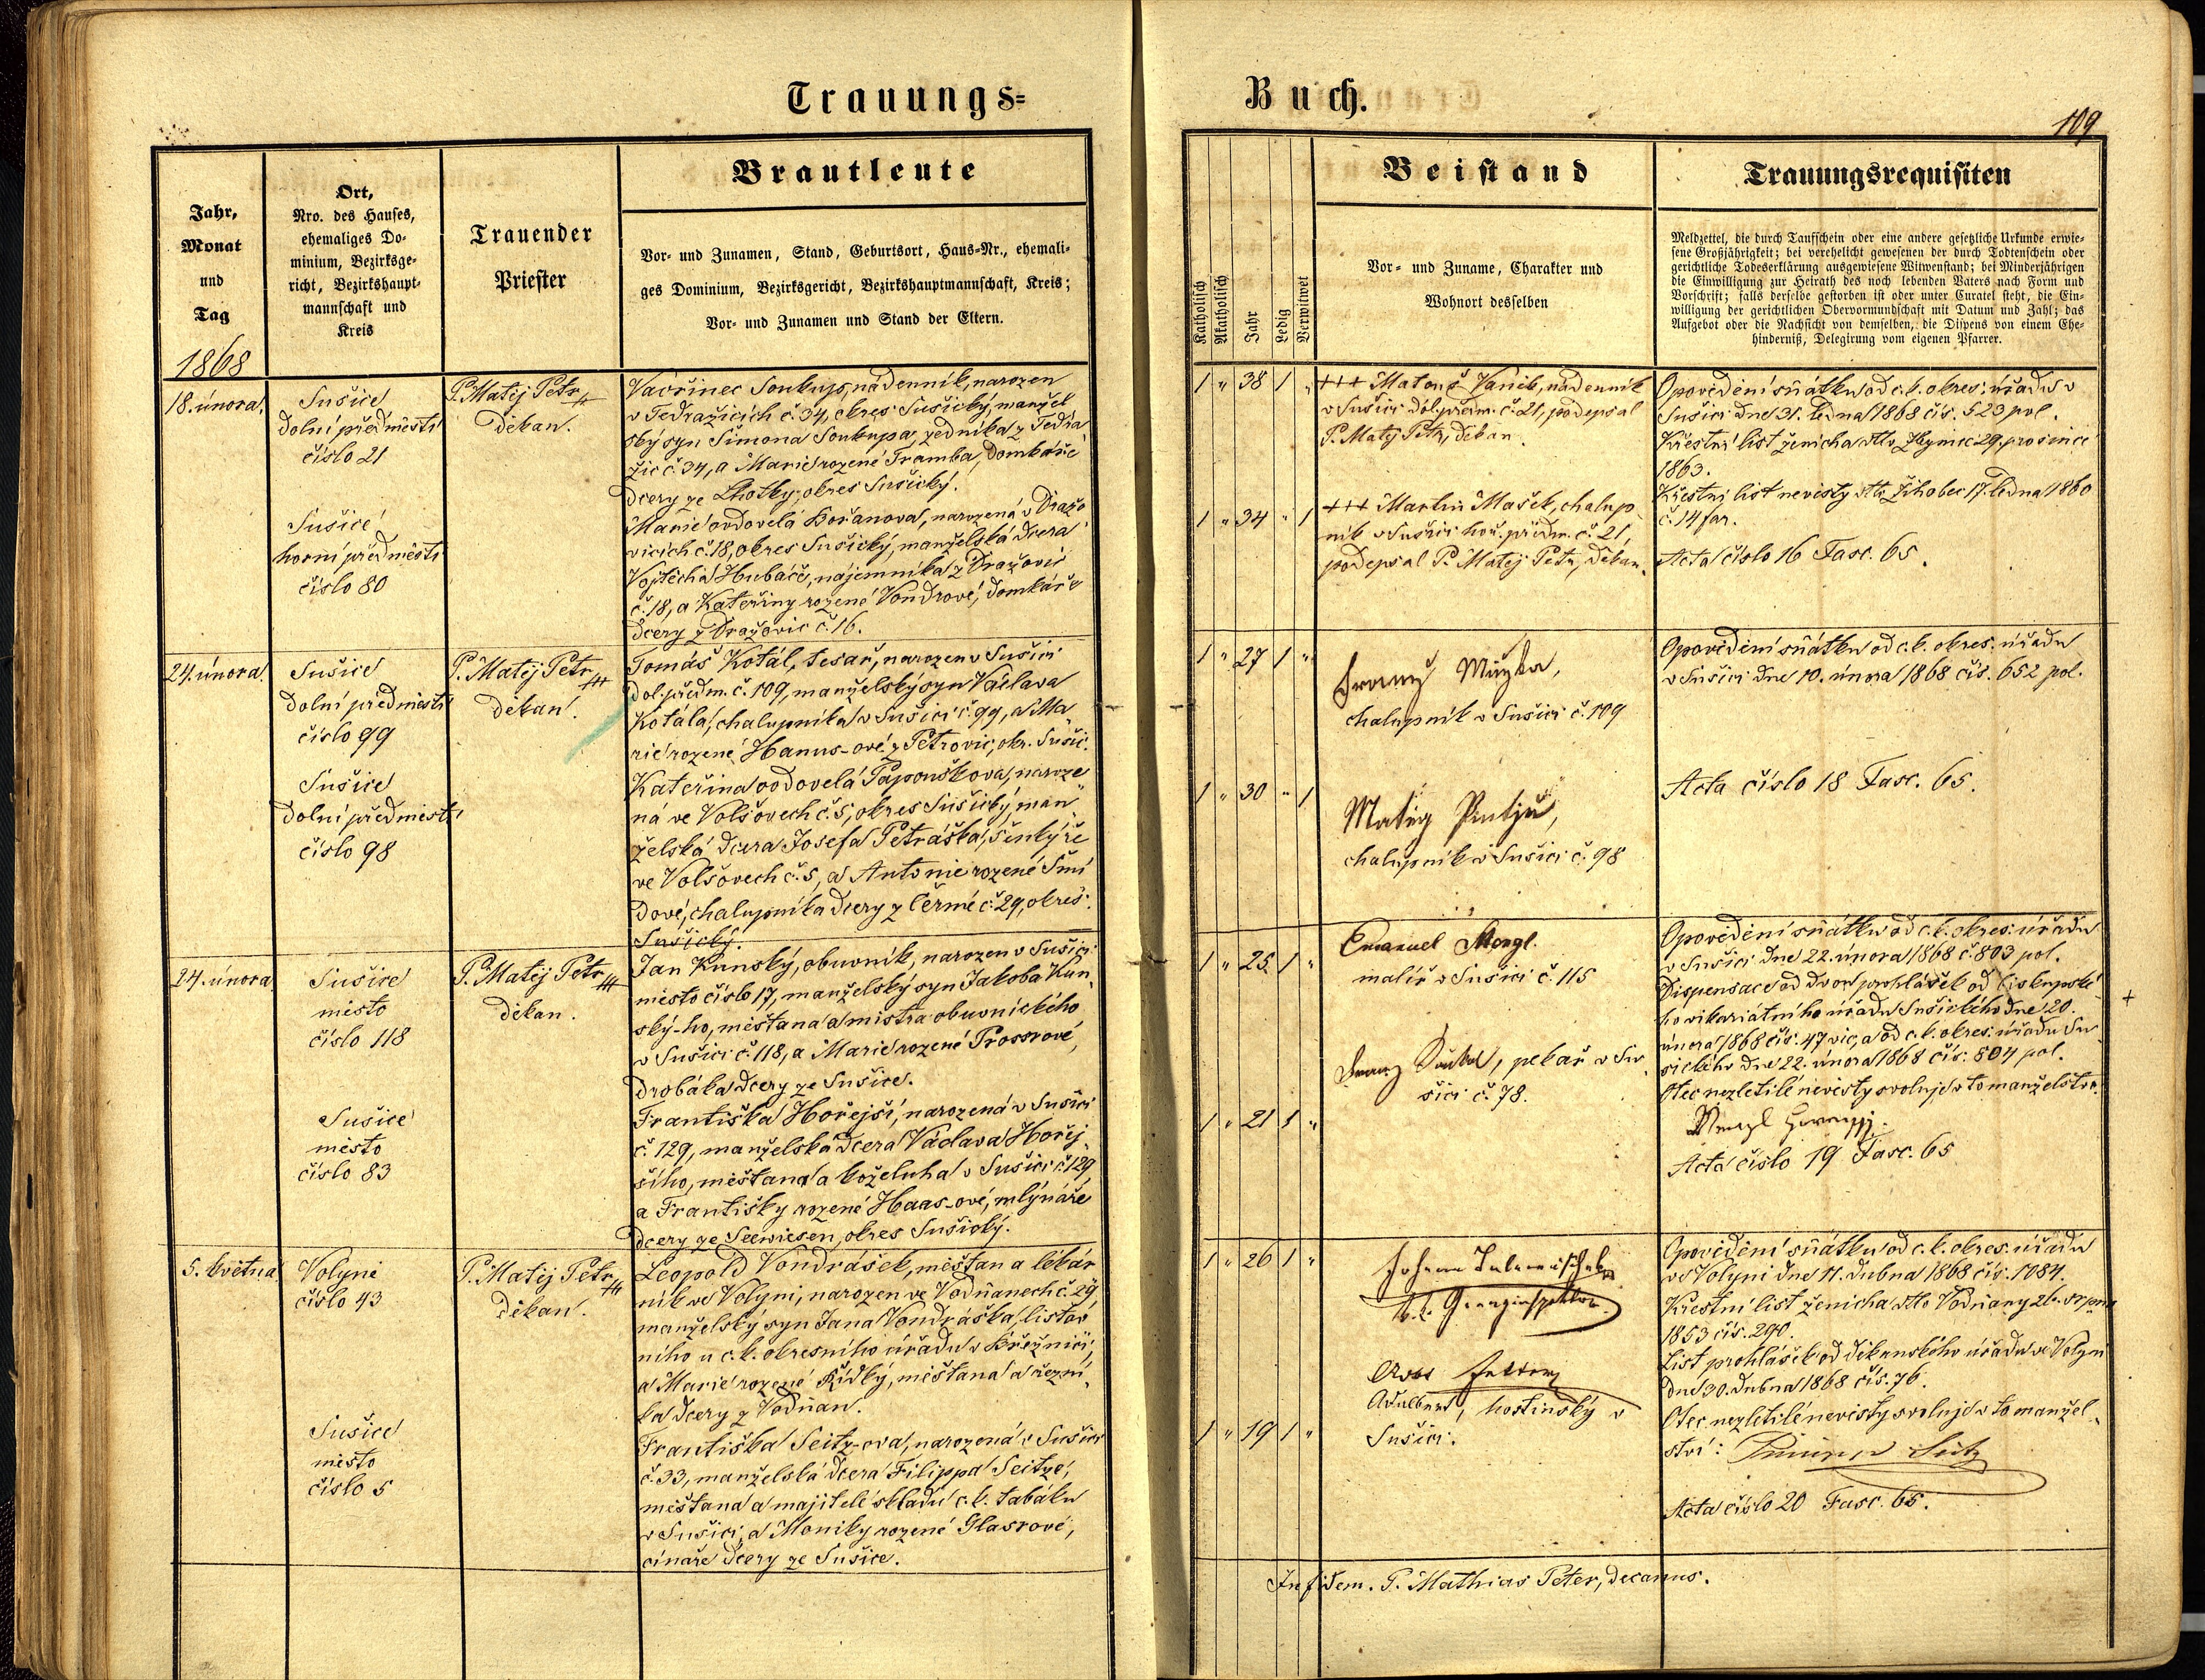 Trauungs=
Buch.
109
Jahr,
Monat
und
Tag
1868
Ort,
Nro. des Hauses,
ehemaliges Do-
minium, Bezirksge-
richt, Bezirkshaupt-
mannschaft und
Kreis
Trauender
Priester
Brautleute
Vor- und Zunamen, Stand, Geburtsort, Haus-Nr., ehemali-
ges Dominium, Bezirksgericht, Bezirkshauptmannschaft, Kreis;
Vor- und Zunamen und Stand der Eltern.
Katholisch
Akatholisch
Jahr
Ledig
Verwitwet
Beistand
Vor- und Zuname, Charakter und
Wohnort desselben
Trauungsrequisiten
Meldzettel, die durch Taufschein oder eine andere gesetzliche Urkunde erwie-
sene Großjährigkeit; bei verehelicht gewesenen der durch Todtenschein oder
gerichtliche Todeserklärung ausgewiesene Witwenstand; bei Minderjährigen
die Einwilligung zur Heirath des noch lebenden Vaters nach Form und
Vorschrift; falls derselbe gestorben ist oder unter Curatel steht, die Ein-
willigung der gerichtlichen Obervormundschaft mit Datum und Zahl; das
Aufgebot oder die Nachsicht von demselben, die Dispens von einem Ehe-
hinderniß, Delegirung vom eigenen Pfarrer.
18. února.
Sušice
dolní předměstí
číslo 21
Sušice
horní předměstí
číslo 80
P. Matěj Petr
děkan.
Vavřinec Soukup, nádenník, narozen
v Tedražicích č. 34, okres Sušický, manžel
ský syn Šimona Soukupa, zedníka z Tedra
žic č. 34, a Marie rozené Tramba, domkáře
dcery ze Lhotky, okres Sušický.
Marie ovdovelá Bořanova, narozená v Dražo
vicích č. 18, okres Sušický, manželská dcera
Vojtěcha Hubáče, nájemníka z Dražovic
č. 18, a Kateřiny rozené Vondrové, domkáře
dcery z Dražovic č. 16.
1 " 38 1 "
1 " 34 " 1
+++ Matouš Vaněk, nádenník
v Sušici dol. předm. č. 21, podepsal
P. Matěj Petr, děkan.
+++ Martin Mašek, chalup
ník v Sušici hoř. předm. č. 21,
podepsal P. Matěj Petr, děkan.
Opovědění sňátku od c. k. okres. úřadu v
Sušici dne 31. ledna 1868 čís. 523 pol.
Křestní list ženicha dtto 29. prosince
1863.
Křestní list nevěsty dtto Žihobec 17. ledna 1860
č. 14 far.
Acta číslo 16 Fasc. 65.
24. února.
Sušice
dolní předměstí
číslo 99
Sušice
dolní předměstí
číslo 98
P. Matěj Petr
děkan.
Tomáš Kotál, tesař, narozen v Sušici
dol. předm. č. 109, manželský syn Václava
Kotála, chalupníka v Sušici č. 99, a Ma
rie rozené Hanus-ové z Petrovic, okr. Sušic.
Kateřina ovdovelá Papoušková, naroze
ná ve Volšovech č. 5, okres Sušický, man
želská dcera Josefa Petráška, šenkýře
ve Volšovech č. 5, a Antonie rozené Šmí
dové, chalupníka dcery z Čermé č. 29, okres
Sušický.
1 " 27 1 "
1 " 30 " 1
chalupník v Sušici č. 109
chalupník v Sušici č. 98
Opovědění sňátku od c. k. okres. úřadu
v Sušici dne 10. února 1868 čís. 652 pol.
Acta číslo 18 Fasc. 65.
24. února
Sušice
město
číslo 118
Sušice
město
číslo 83
P. Matěj Petr
děkan.
Jan Kunský, obuvník, narozen v Sušici
město číslo 17, manželský syn Jakoba Kun
ský-ho, měšťana a mistra obuvnického
v Sušici č. 118, a Marie rozené Prossrové,
drobáka dcery ze Sušice.
Františka Hořejší, narozená v Sušici
č. 129, manželská dcera Václava Hořej
šího, měšťana a koželuha v Sušici č. 129
a Františky rozené Haas-ové, mlynáře
dcery ze Seewiesen, okres Sušický.
1 " 25 1 "
1 " 21 1 "
Emanuel
malíř v Sušici č. 115
Franz , pekař v Su
šici č. 78.
Opovědění sňátku od c. k. okres. úřadu
v Sušici dne 22. února 1868 č. 803 pol.
Dispensace od dvou prohlášek od biskupské
ho vikariátního úřadu Sušického dne 20.
února 1868 čís. 47 vic, a od c. k. okres. úřadu Su
sického dne 22. února 1868 čís. 804 pol.
Otec nezletilé nevěsty svoluje v to manželství.
Acta číslo 19 Fasc. 65
+
5. května
Volyně
číslo 43
Sušice
město
číslo 5
P. Matěj Petr
děkan.
Leopold Vondrášek, měšťan a lékár
ník ve Volyni, narozen ve Vodňanech č. 29,
manželský syn Jana Vondráška, listov
ního u c. k. okresního úřadu v Březnici,
a Marie rozené Řídký, měšťana a řezní
ka dcery z Vodňan.
Františka Seitz-ova, narozená v Sušici
č. 33, manželská dcera Filippa Seitze,
měšťana a majitele skladu c. k. tabáku
v Sušici, a Moniky rozené Glasrové,
cínaře dcery ze Sušice.
1 " 26 1 "
1 " 19 1 "
Johann
k. k.
Adalbert, hostinský v
Sušici.
Opovědění sňátku od c. k. okres. úřadu
ve Volyni dne 11. dubna 1868 čís. 1084.
Křestní list ženicha dtto Vodňany 26. srpna
1853 čís. 290.
List prohlášek od děkanského úřadu ve Volyni
dne 30. dubna 1868 čís. 76.
Otec nezletilé nevěsty svoluje v to manžel
ství: Seitz
Acta číslo 20 Fasc. 65.
In fidem. P. Mathias Peter, decanus.